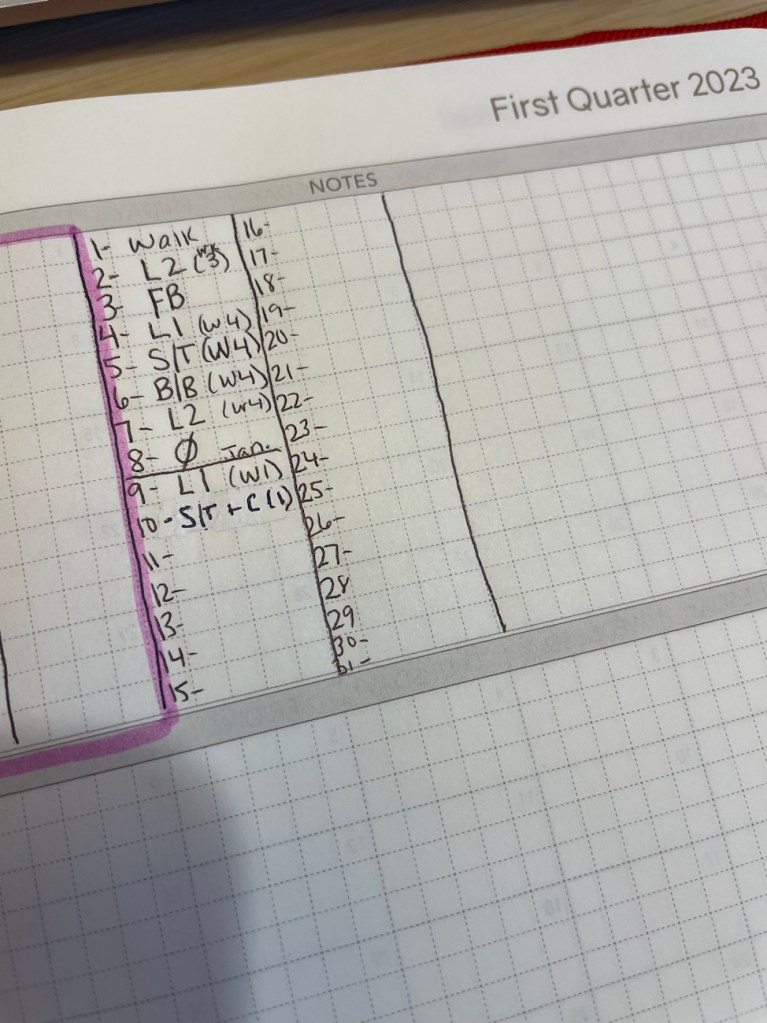 First Quarter 2023
NOTES
1- Walk
2- L2 (wk 3)
3- FB
4- L1 (W4)
5- S/T (W4)
6- B/B (W4)
7- L2 (W4)
8- Ø Jan.
9- L1 (W1)
10- S/T + C (1)
11-
12-
13-
14-
15-
16-
17-
18-
19-
20-
21-
22-
23-
24-
25-
26-
27-
28
29
30-
31-